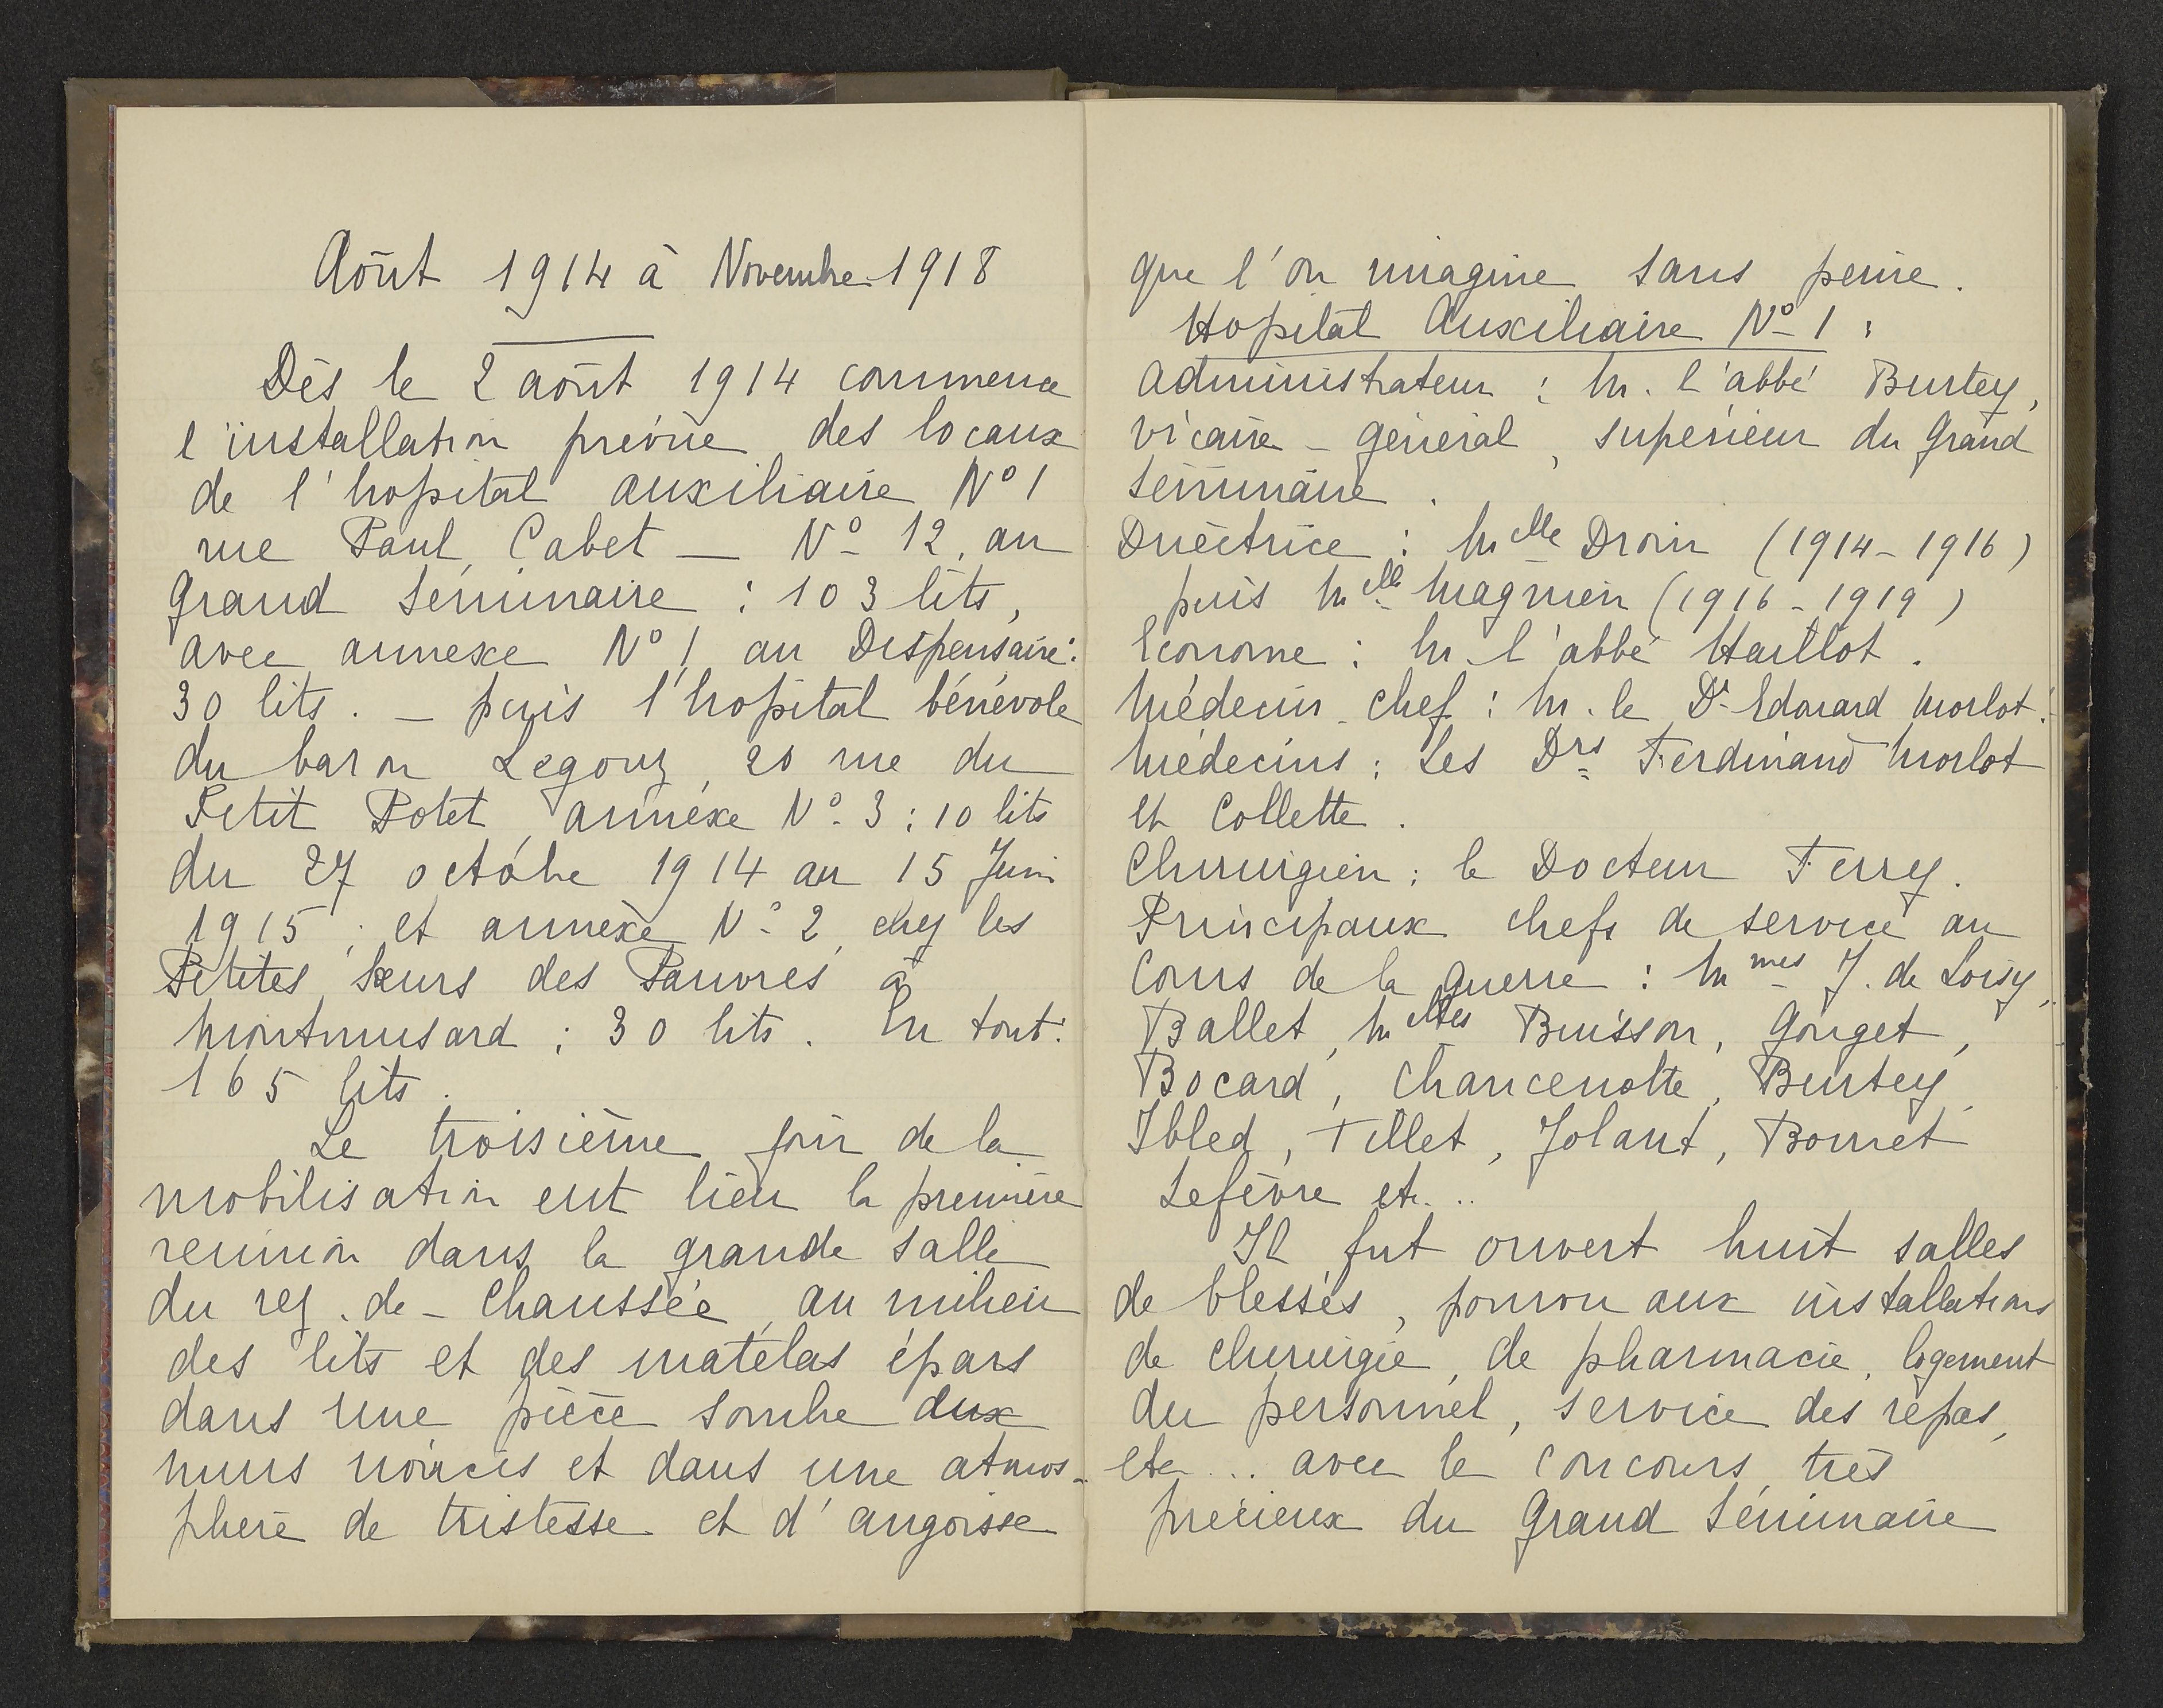 Août 1914 à Novembre 1918
Dès le 2 août 1914 commence
l'installation prévue des locaux
de l'hopital auxiliaire N° 1
rue Paul Cabet — N° 12, au
Grand Séminaire : 103 lits,
avec annexe N° 1 au Dispensaire :
30 lits. — puis l'hopital bénévole
du baron Legouz, 20 rue du
Petit Potet, annéxe N° 3 : 10 lits
du 27 octobre 1914 au 15 Juin
1915 ; et annèxe N° 2, chez les
Petites Sœurs des Pauvres à
Montmusard : 30 lits. En tout :
165 lits.
Le troisième jour de la
mobilisation eut lieu la première
réunion dans la grande salle
du rez-de-chaussée, au milieu
des lits et des matelas épars
dans une pièce sombre aux
murs noircis et dans une atmos-
phère de tristesse et d'angoisse
que l'on imagine sans peine.
Hopital Auxiliaire N° 1 :
Administrateur : M. l'abbé Burtey,
vicaire-général, supérieur du Grand
Séminaire.
Directrice : Melle Droin (1914-1916)
puis Melle Magnien (1916-1919)
Econome : M. l'abbé Haillot.
Médecin-chef : M. le Dr Edouard Morlot.
Médecins : Les Drs Ferdinand Morlot
et Collette.
Chirurgien : le Docteur Ferry.
Principaux chefs de service au
cours de la guerre : Mmes J. de Loisy,
Ballet, Melles Buisson, Gouget,
Bocard, Chancenotte, Burtey,
Ibled, Tillet, Jolant, Bornet
Lefèvre etc...
Il fut ouvert huit salles
de blessés, pourvu aux installations
de chirurgie, de pharmacie, logement
du personnel, service des repas,
etc... avec le concours très
précieux du Grand Séminaire